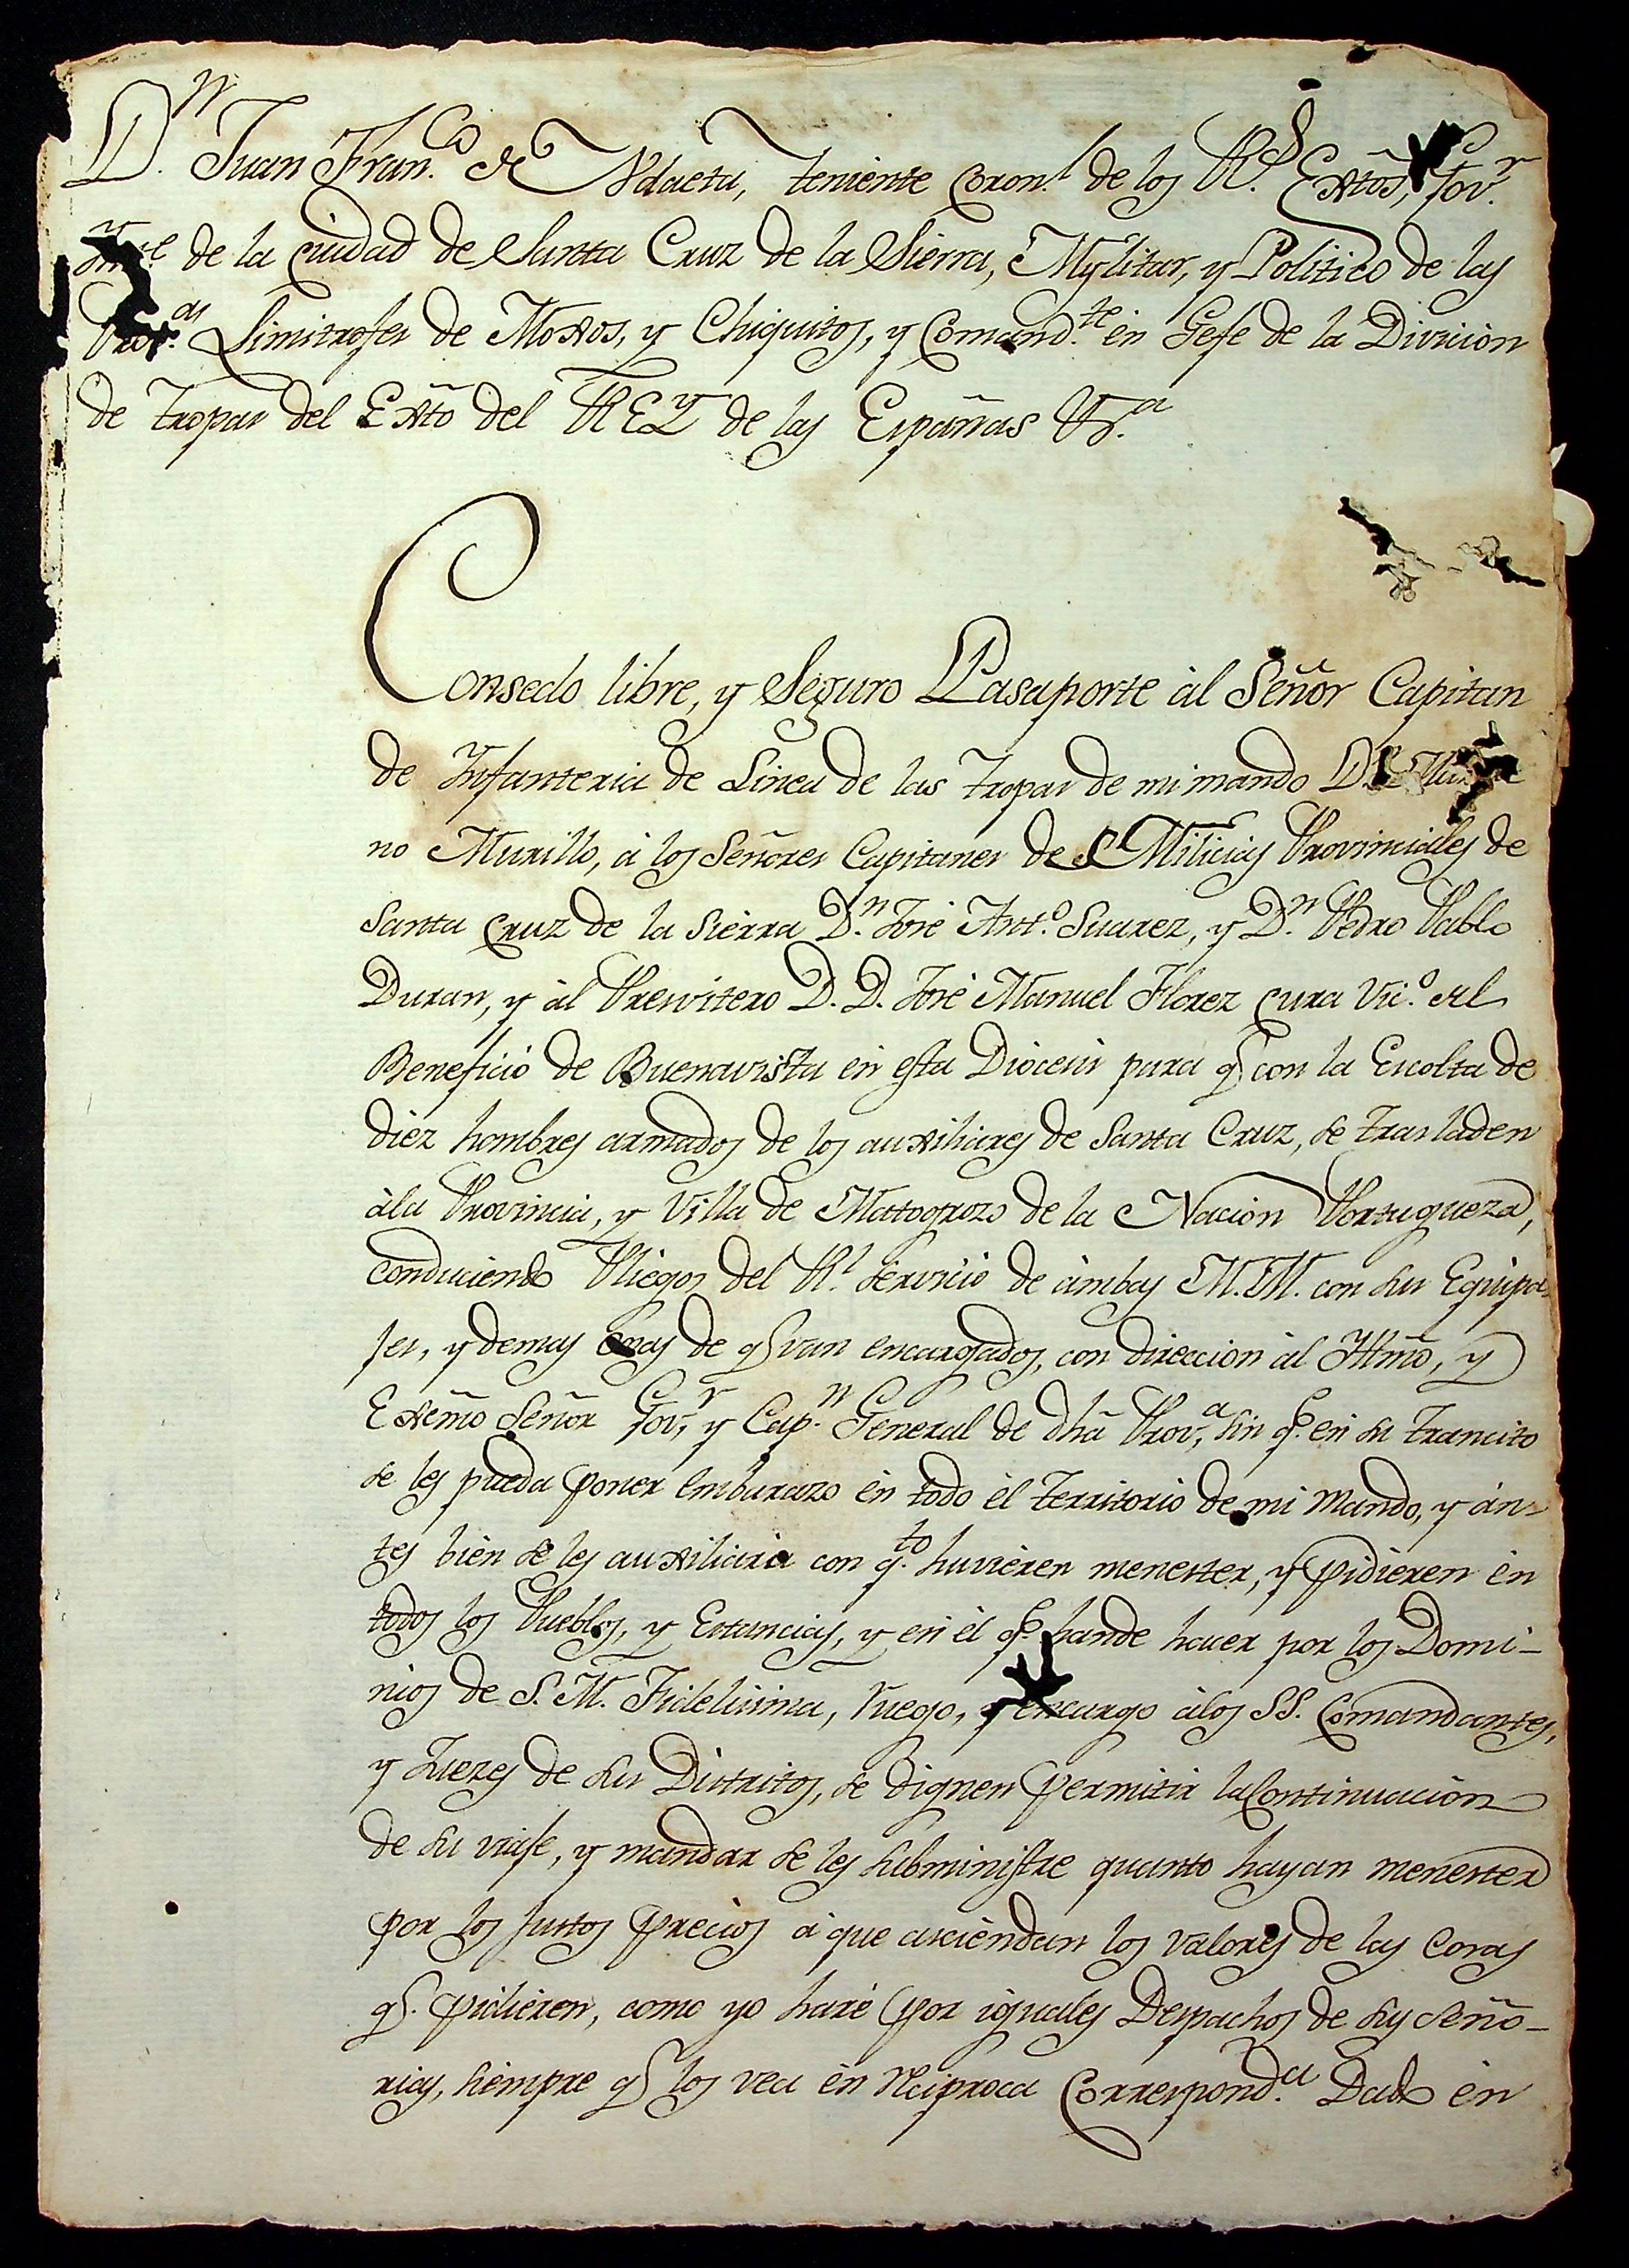 Dn. Juan Franco. de Udaeta, teniente Coronl. de los Rs. Extos, Govr.
de la ciudad de Santa Cruz de la Sierra, Mylitar, y Politico de las
Provas. Limitrofes de Moxos, y Chiquitos, y Comandte. en Gefe de la Divicion
de tropas del Exto del REY de las Españas &a.
Consedo libre, y Seguro Pasaporte al Señor Capitan
de Infanteria de Linea de las tropas de mi mando Dn.
no Murillo, á los Señores Capitanes de Milicias Provinciales de
Santa Cruz de la Sierra Dn. José Anto. Suarez, y Dn. Pedro Pablo
Duran, y ál Presvitero D. D. José Manuel Florez Cura Vico. del
Beneficio de Buenavista en esta Diocesis para q. con la Escolta de
diez hombres armados de los auxiliares de Santa Cruz, se trasladen
ála Provincia, y Villa de Mattogrozo de la Nacion Portugueza,
conduciendo Pliegos del Rl. servicio de ámbas M.M. con sus Equipa-
jes, y demas cosas de q. van encargados, con direccion ál Yltmo, y
Exemo Señor Govr, y Capn. General de dha Prova, sin q. en su trancito
se les pueda poner embarazo en todo él territorio de mi mando, y án-
tes bien se les auxiliará con qto. huvieren menester, y pidieren en
todos los Pueblos, y Estancias, y en él q. hande hacer por los Domi-
nios de S. M. Fidelisima, ruego, y encargo álos SS. Comandantes,
y Juezes de sus Distritos, se dignen permitir la Continuacion
de su viaje, y mandar se les subministre quanto hayan menester
por los justos precios á que asciendan los valores de las cosas
q. pidieren, como yo haré por iguales Despachos de sus Seño-
rias, siempre q. los vea en reciproca Corresponda. Dado en